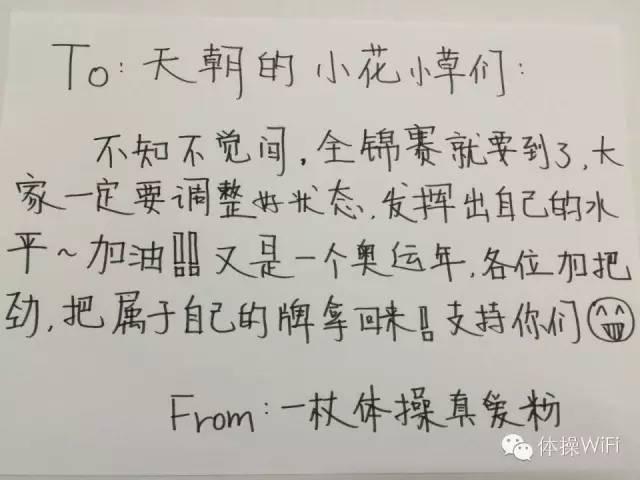 To: 天朝的 小花小草们:
不知不觉间,全锦赛就要到了,大
家一定要调整好状态,发挥出自己的水
平~加油!!! 又是一个奥运年,各位加把
劲,把属于自己的牌拿回来!!支持你们😁
From: 一杖体操真爱粉
体操WiFi